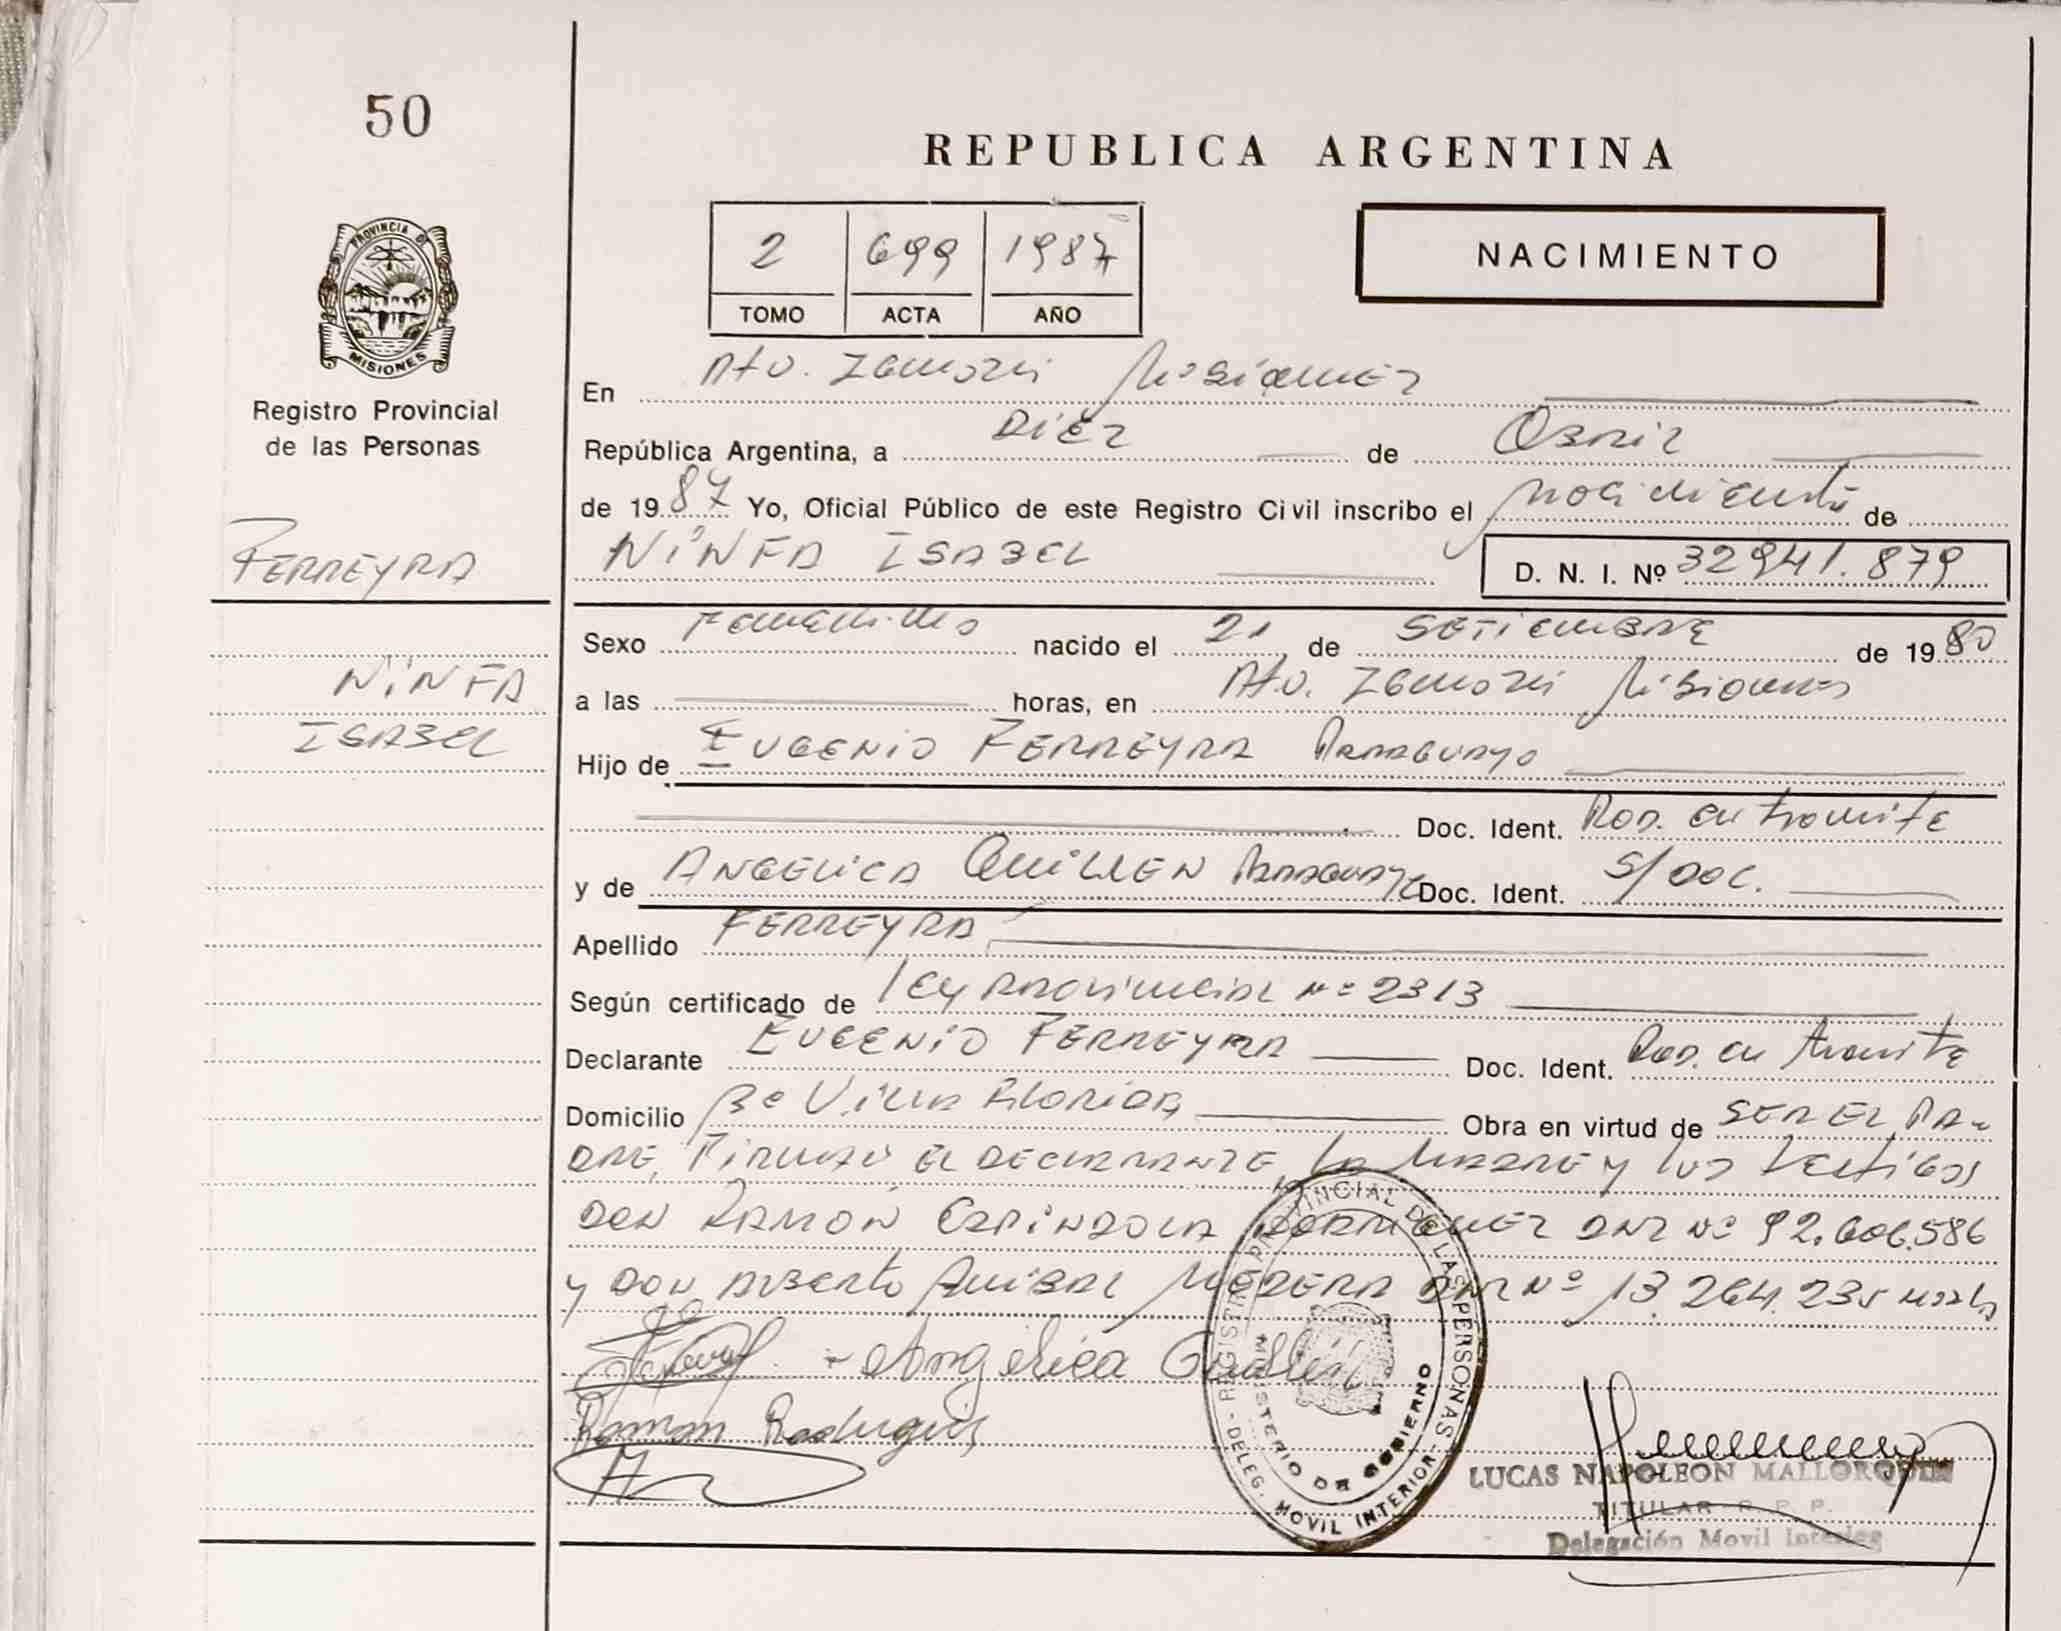 50
REPUBLICA ARGENTINA
2 699 1987
TOMO ACTA AÑO
NACIMIENTO
PROVINCIA DE
MISIONES
Registro Provincial
de las Personas
En Pto. Misiones
República Argentina, a DIEZ de ABRIL
de 1987 Yo, Oficial Público de este Registro Civil inscribo el nacimiento de
FERREYRA
NINFA ISABEL
D. N. I. Nº 32941.879
Sexo Femenino nacido el 21 de SETIEMBRE de 1980
NINFA
ISABEL
a las horas, en Pto. Misiones
Hijo de EUGENIO FERREYRA PARAGUAYO
Doc. Ident. Rad. en tramite
y de ANGELICA GUILLEN PARAGUAYA Doc. Ident. S/DOC.
Apellido FERREYRA
Según certificado de LEY PROVINCIAL Nº 2313
Declarante EUGENIO FERREYRA Doc. Ident. Rad. en tramite
Domicilio Bº VILLA Obra en virtud de SER EL PA-
DRE, FIRMAN EL DECLARANTE, la MADRE y los testigos
DON RAMON ESPINDOLA RODRIGUEZ DNI Nº 92.606.586
y DON ALBERTO ANIBAL DNI Nº 13.264.235
Angélica Guillén
Ramon Rodrigues
REGISTRO PROVINCIAL DE LAS PERSONAS
DELEG. MOVIL INTERIOR
MINISTERIO DE GOBIERNO
LUCAS NAPOLEON MALLORQUIN
TITULAR R. P. P.
Delegación Movil Interior